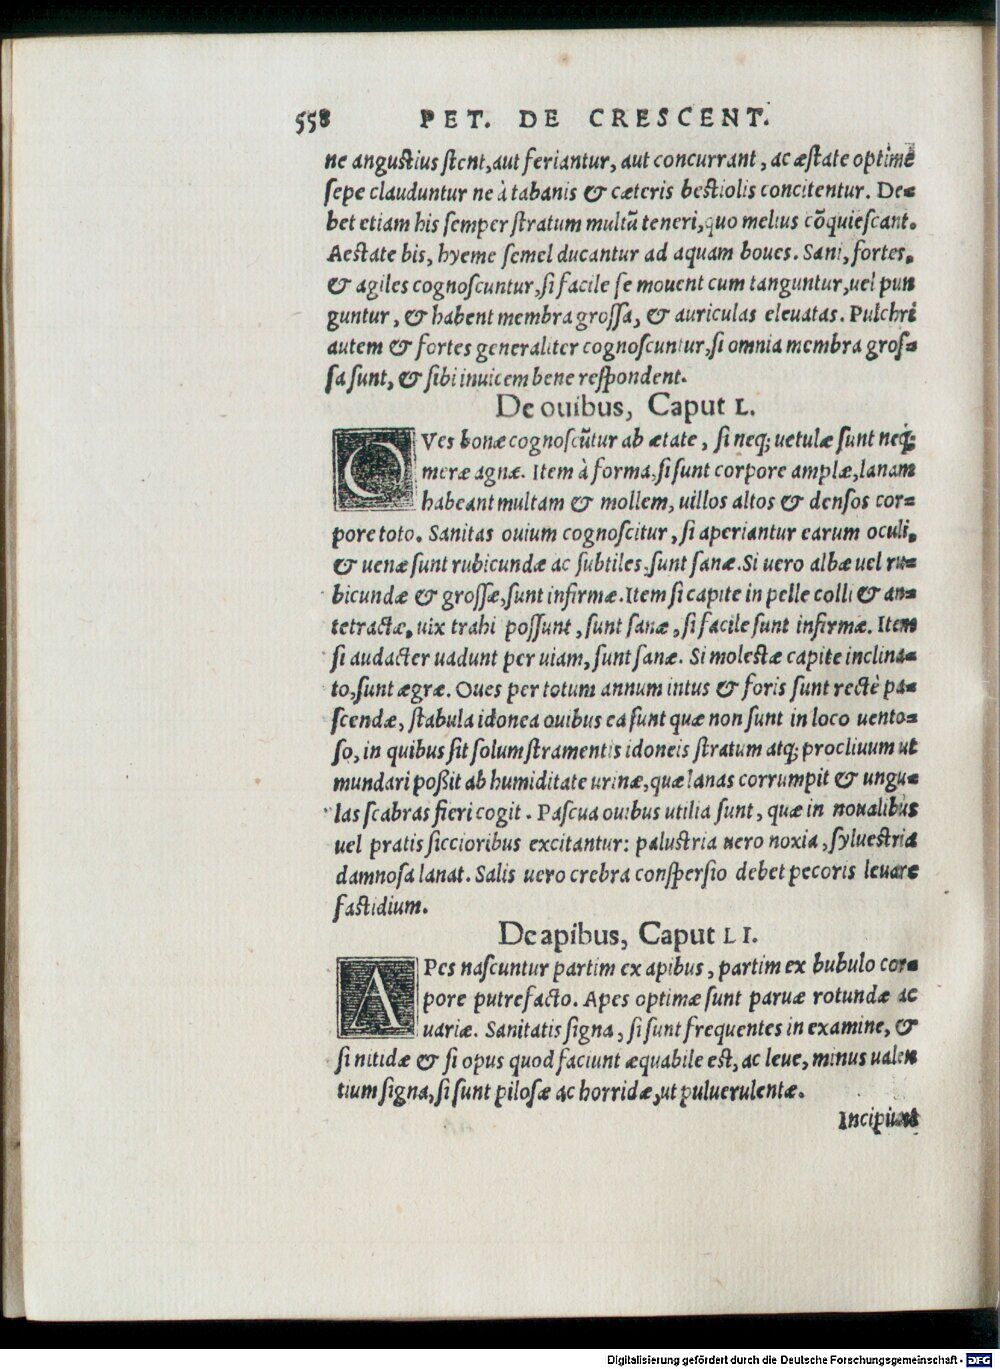 558 PET. DE CRESCENT.
ne angustius stent, aut feriantur, aut concurrant, ac æstate optime
sepe clauduntur ne à tabanis & cæteris bestiolis concitentur. De-
bet etiam his semper stratum multũ teneri, quo melius cõquiescant.
Aestate bis, hyeme semel ducantur ad aquam boues. Sani, fortes,
& agiles cognoscuntur, si facile se mouent cum tanguntur, uel pun
guntur, & habent membra grossa, & auriculas eleuatas. Pulchri
autem & fortes generaliter cognoscuntur, si omnia membra gros-
sa sunt, & sibi inuicem bene respondent.
De ouibus, Caput L.
OVes bonæ cognoscũtur ab ætate, si neq; uetulæ sunt neq;
meræ agnæ. Item à forma, si sunt corpore amplæ, lanam
habeant multam & mollem, uillos altos & densos cor-
pore toto. Sanitas ouium cognoscitur, si aperiantur earum oculi,
& uenæ sunt rubicundæ ac subtiles, sunt sanæ. Si uero albæ uel ru-
bicundæ & grossæ, sunt infirmæ. Item si capite in pelle colli & an-
tetractæ, uix trahi possunt, sunt sanæ, si facile sunt infirmæ. Item
si audacter uadunt per uiam, sunt sanæ. Si molestæ capite inclina-
to, sunt ægræ. Oues per totum annum intus & foris sunt rectè pa-
scendæ, stabula idonea ouibus ea sunt quæ non sunt in loco uento-
so, in quibus sit solum stramentis idoneis stratum atq; procliuum ut
mundari poßit ab humiditate urinæ, quæ lanas corrumpit & ungu-
las scabras fieri cogit. Pascua ouibus utilia sunt, quæ in noualibus
uel pratis siccioribus excitantur: palustria uero noxia, syluestria
damnosa lanat. Salis uero crebra conspersio debet pecoris leuare
fastidium.
De apibus, Caput LI.
APes nascuntur partim ex apibus, partim ex bubulo cor-
pore putrefacto. Apes optimæ sunt paruæ rotundæ ac
uariæ. Sanitatis signa, si sunt frequentes in examine, &
si nitidæ & si opus quod faciunt æquabile est, ac leue, minus ualen
tium signa, si sunt pilosæ ac horridæ, ut puluerulentæ.
Incipiunt
Digitalisierung gefördert durch die Deutsche Forschungsgemeinschaft - DFG